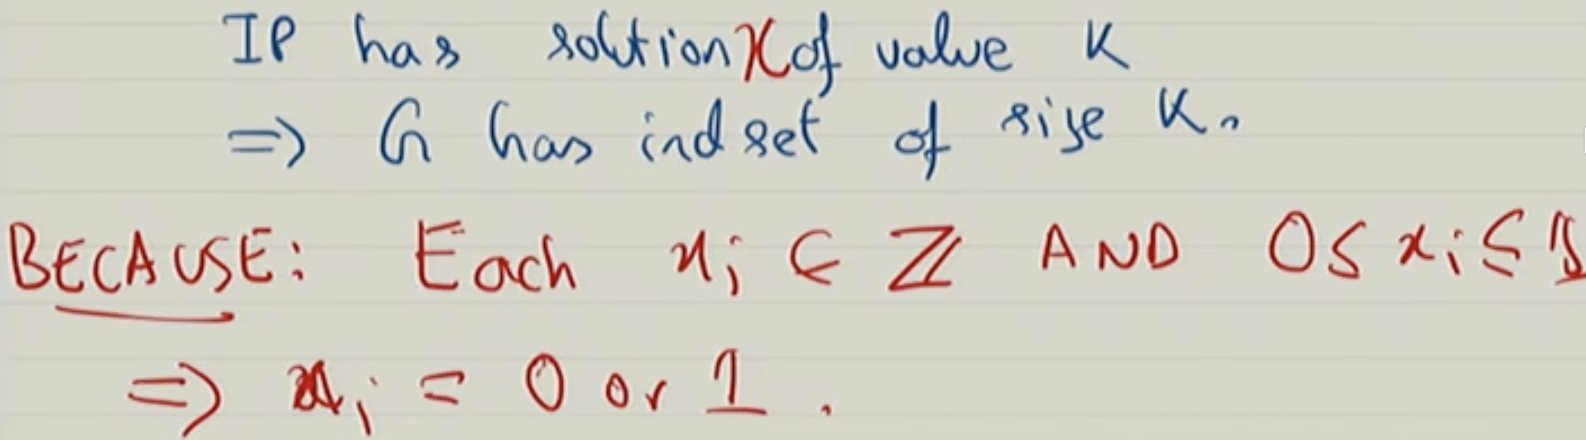 IP has solution x of value K
=> G has ind set of size K.
BECAUSE: Each xi ∈ ℤ AND 0 ≤ xi ≤ 1
=> xi = 0 or 1.